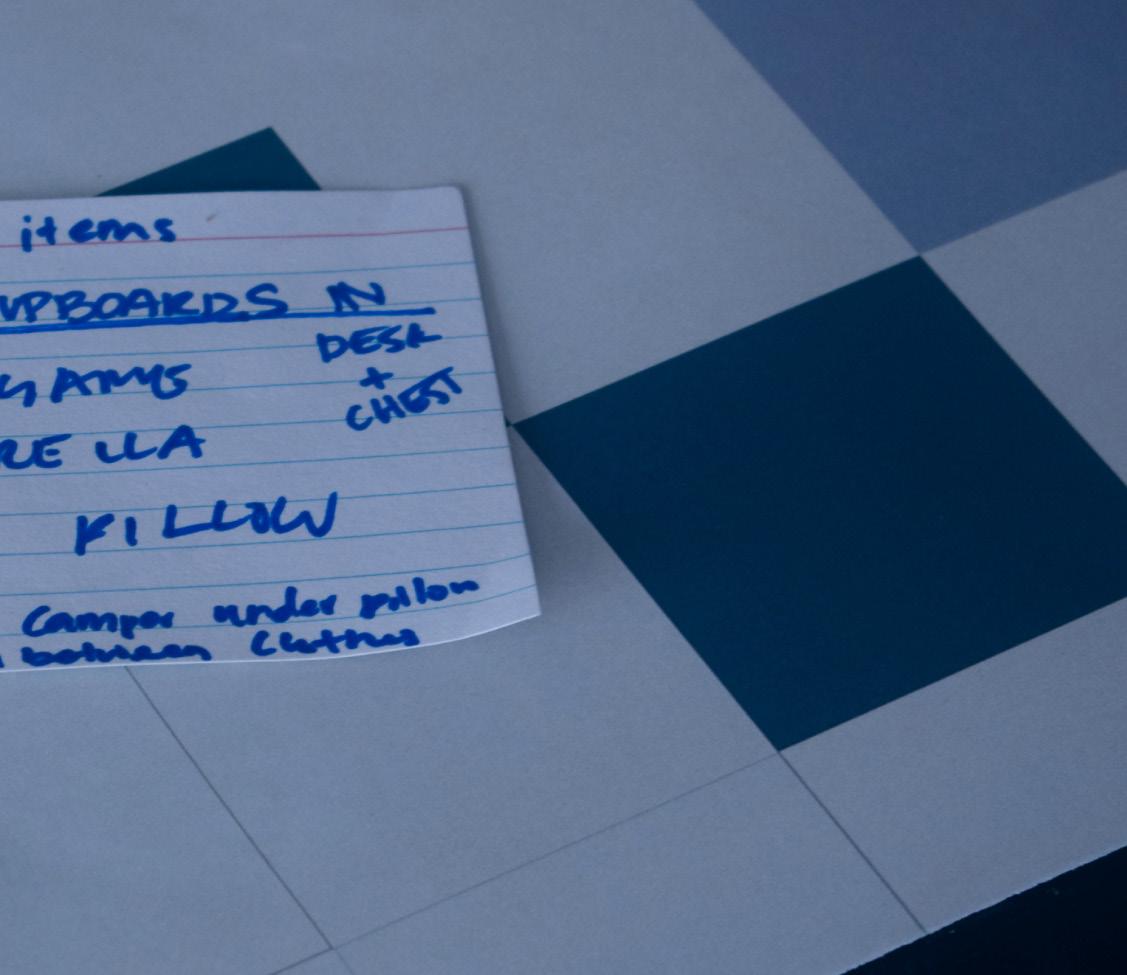 items
UPBOARDS IN
DESK
+
CHEST
RELLA
PILLOW
Camper under pillow
between Clothes